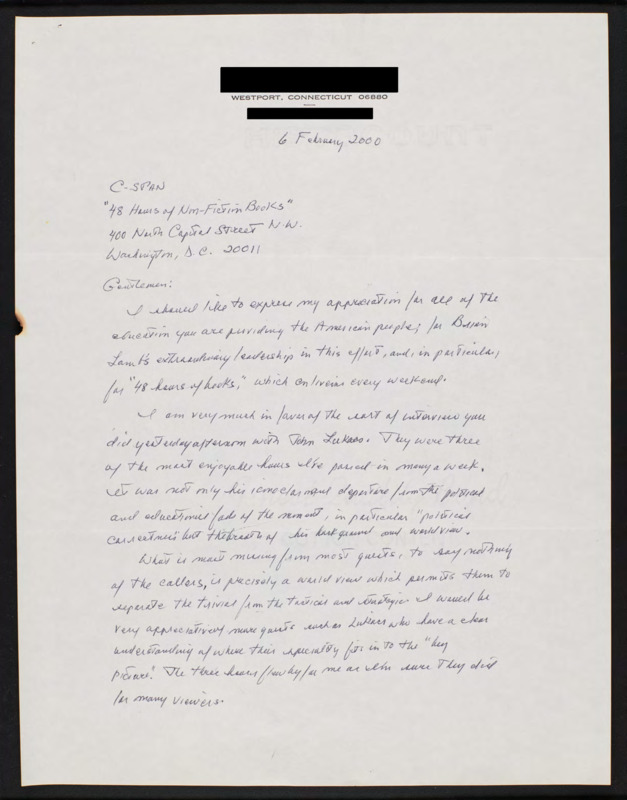 WESTPORT, CONNECTICUT 06880
6 February 2000
C-SPAN
"48 Hours of Non-Fiction Books"
400 North Capital Street N.W.
Washington, D.C. 20011
Gentlemen:
I should like to express my appreciation for all of the
education you are providing the American people; for Brian
Lamb's extraordinary leadership in this effort, and, in particular,
for "48 hours of books," which enlivens every weekend.
I am very much in favor of the sort of interview you
did yesterday afternoon with John Lukacs. They were three
of the most enjoyable hours I've passed in many a week.
It was not only his iconoclasm and departure from the political
and educational fads of the moment, in particular "political
correctness" but the breadth of his background and world view.
What is most missing from most guests, to say nothing
of the callers, is precisely a world view which permits them to
separate the trivial from the tactical and strategic. I would be
very appreciative of more guests such as Lukacs who have a clear
understanding of where their specialty fits in to the "big
picture." The three hours flew by for me as I'm sure they did
for many viewers.